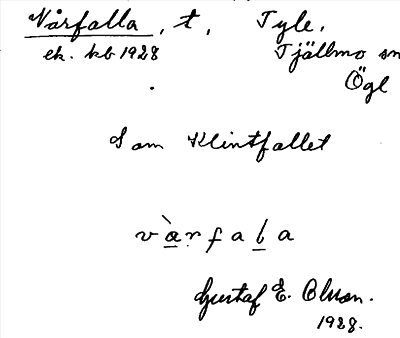 Vårfalla, t, Tyle,
ek. kb 1928 Tjällmo sn
Ögl
Sam Klintfallet
vàrfala
Gustaf E. Olsson.
1928.